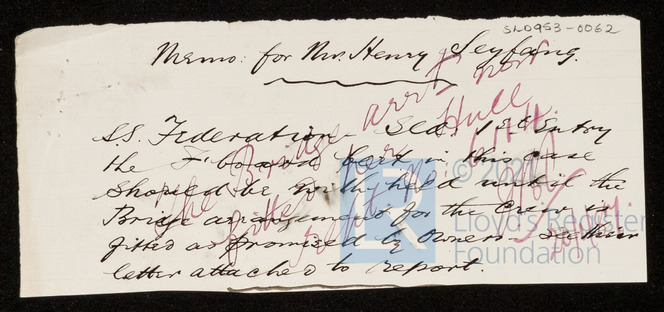 SLD953-0062
Memo: for Mr. Henry Seyfang.
S.S. Federation - Sld. 1st Entry
the F'board Cert in this case
should be withheld until the
Bridge arrangements for the Crew is
fitted as promised by Owners - See their
letter attached to report.
The Bridge arrt now
fitted see Hull
rept No
© 202
Lloyd's Register
Foundation